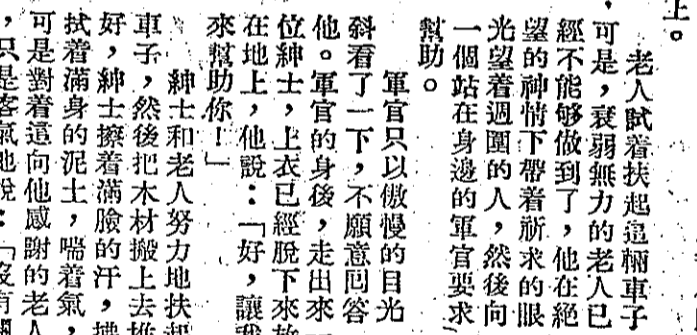 上。
老人試着扶起這輛車子
，可是，衰弱無力的老人已
經不能够做到了，他在絕
望的神情下帶着祈求的眼
光望着週圍的人，然後向
一個站在身邊的軍官要求
幫助。
軍官只以傲慢的目光
斜看了一下，不願意囘答
他。軍官的身後，走出來一
位紳士，上衣已經脫下來放
在地上，他說：「好，讓我
來幫助你！」
紳士和老人努力地扶起
車子，然後把木材搬上去堆
好，紳士擦着滿臉的汗，拂
拭着滿身的泥土，喘着氣，
可是對着這向他感謝的老人
，只是客氣地說：「沒有